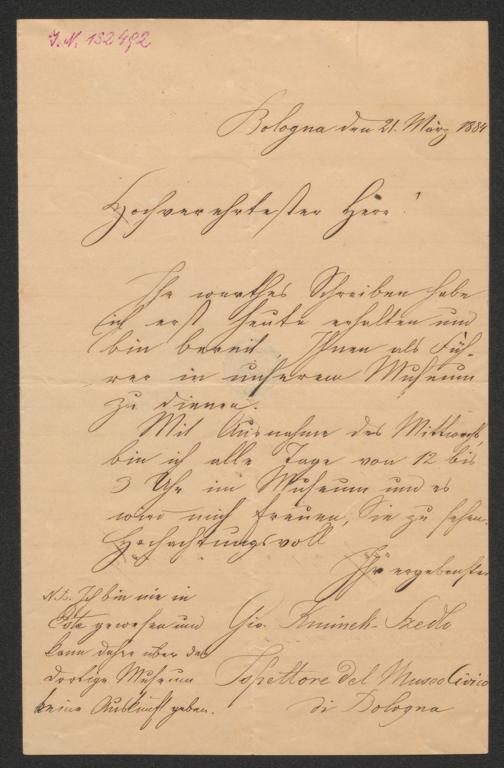 J. N. 132492
Bologna den 21. März 1884
Hochverehrtester Herr!
Ihr werthes Schreiben habe
ich erst heute erhalten und
bin bereit Ihnen als Füh-
rer in unserem Museum
zu dienen.
Mit Ausnahme des Mittwoch
bin ich alle Tage von 12 bis
3 Uhr im Museum und es
wird mich freuen, Sie zu sehen.
Hochachtungsvoll
Ihr ergebenster
Gio. Kminek-Szedlo
Ispettore del Museo Civico
di Bologna
N.B. Ich bin nie in
gewesen und
kann daher über das
dortige Museum
keine Auskunft geben.